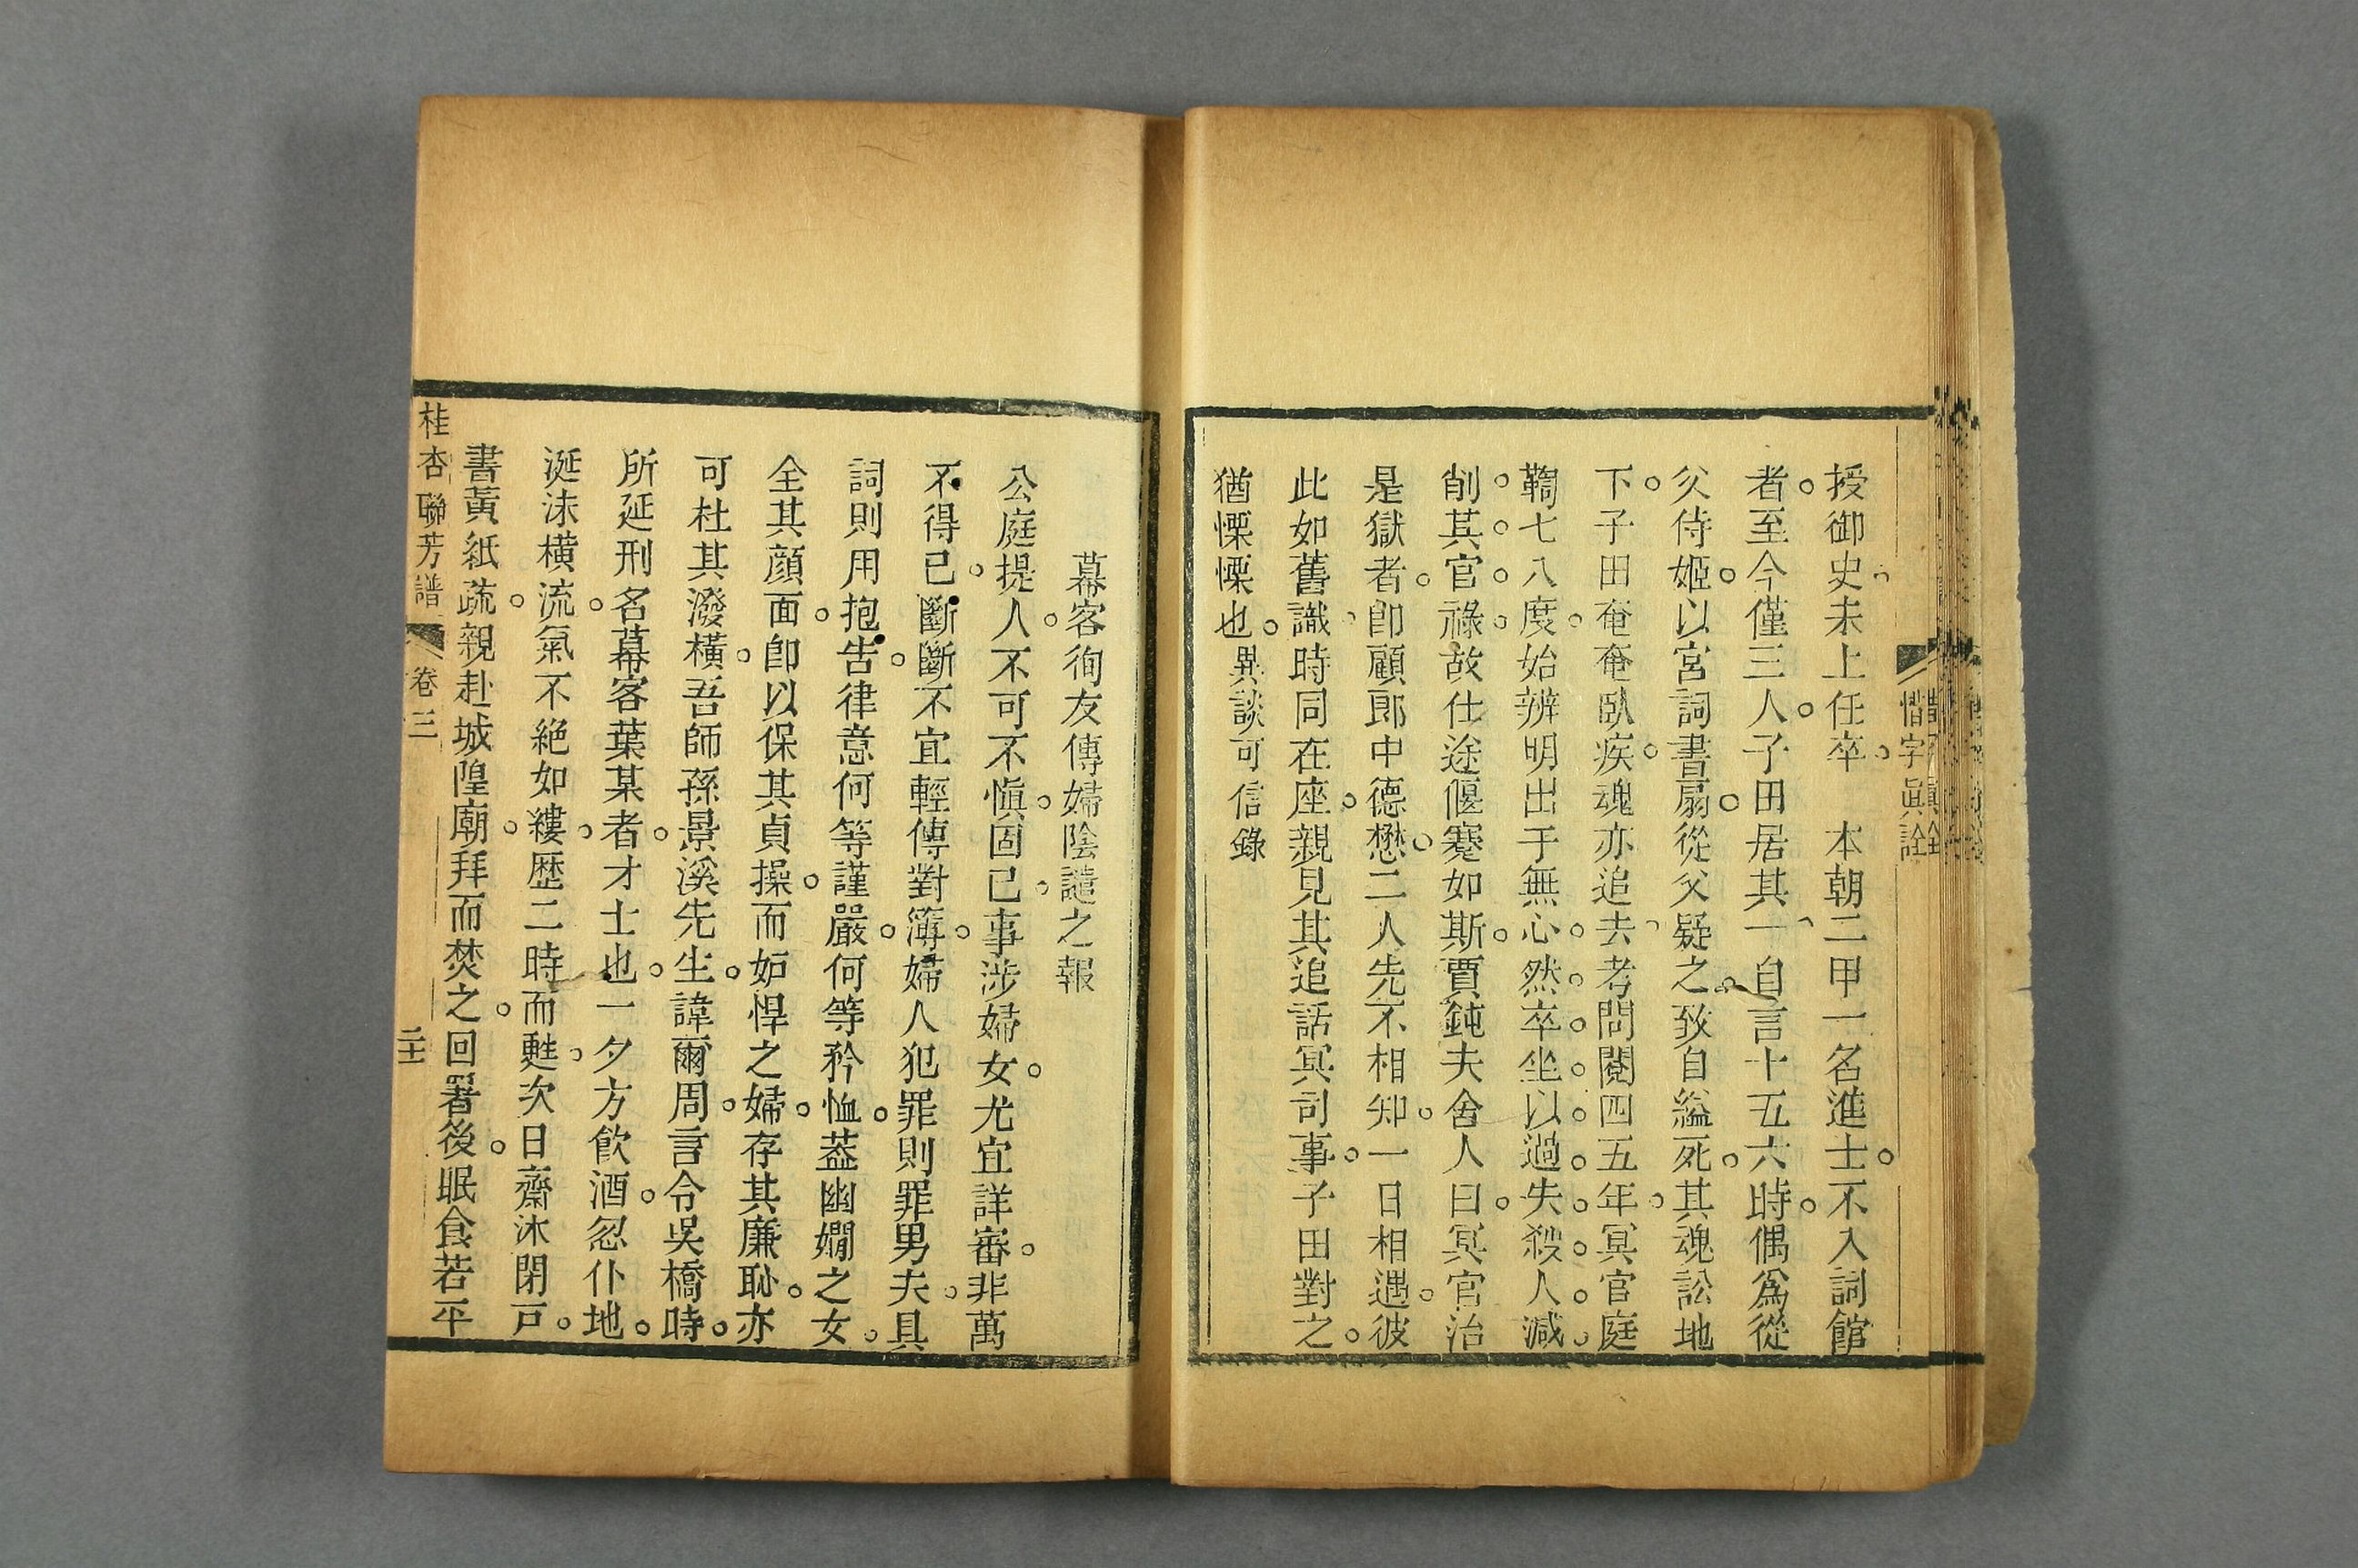 惜字眞詮
授御史未上任卒　本朝二甲一名進士。不入詞館
者。至今僅三人。子田居其一自言十五六時。偶爲從
父侍姬。以宮詞書扇。從父疑之。致自縊死。其魂訟地
下。子田奄奄臥疾。魂亦追去考問閱四五年。冥官庭
鞫七八度。始辨明出于無心。然。卒。坐。以。過。失。殺。人。減。
削。其。官。祿。故仕途偃蹇如斯。賈鈍夫舍人曰。冥官治
是獄者。卽顧郎中德懋。二人先不相知。一日相遇。彼
此如舊識。時同在座。親見其追話冥司事。子田對之。
猶慄慄也。異談可信錄
幕客徇友傳婦陰譴之報
公庭提人。不可不愼。固已。事涉婦女。尤宜詳審。非萬
不得已。斷斷不宜輕傳對簿。婦人犯罪則罪男夫。具
詞則用抱告。律意何等謹嚴。何等矜恤。葢幽嫺之女。
全其顏面。卽以保其貞操。而妬悍之婦。存其廉恥。亦
可杜其潑橫。吾師孫景溪先生。諱爾周。言令吳橋時。
所延刑名幕客葉某者。才士也。一夕方飮酒。忽仆地。
涎沫橫流。氣不絕如縷。歷二時而甦。次日齋沐閉戸。
書黃紙疏。親赴城隍廟。拜而焚之。回署後。眠食若平
桂杏聯芳譜
卷三